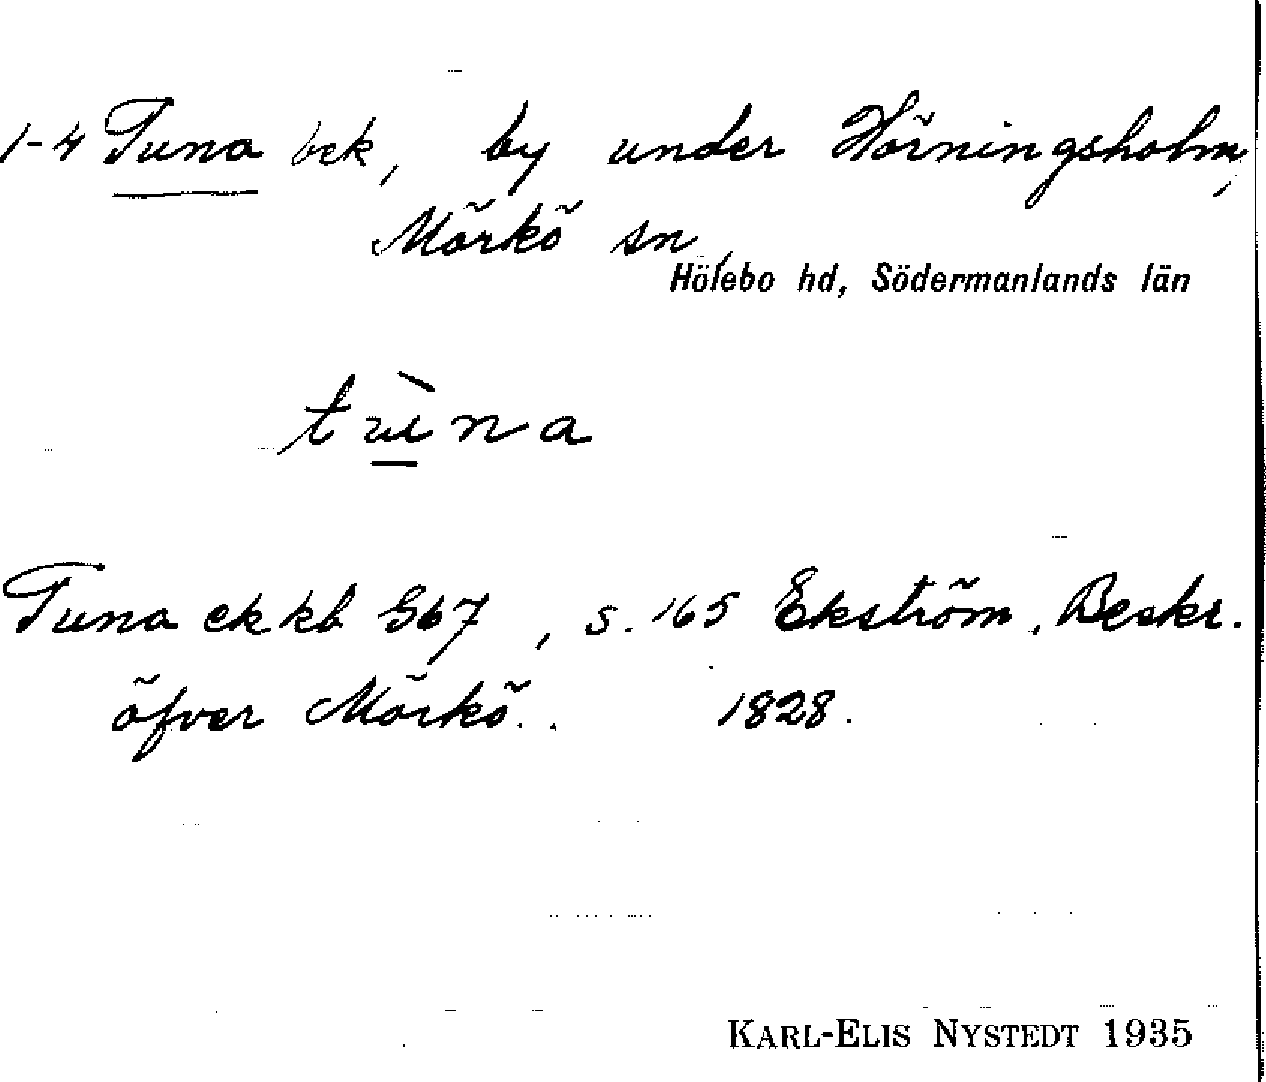 1-4 Tuna bek, by under Hörningsholm,
Mörkö sn,
Hölebo hd, Södermanlands län
tùna
Tuna ekkb 567, s. 165 Ekström, Beskr.
öfver Mörkö. 1828.
KARL-ELIS NYSTEDT 1935